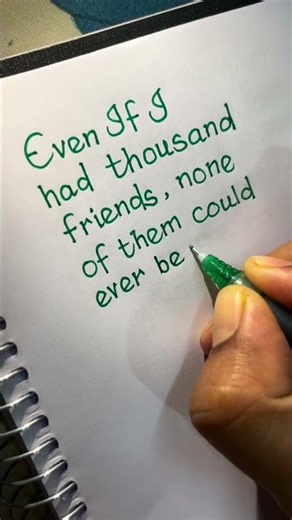 Even If I
had thousand
friends, none
of them could
ever be